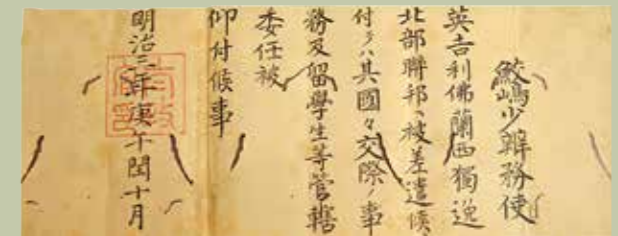 鮫嶋少辨務使
英吉利佛蘭西獨逸
北部聯邦ヘ被差遣候ニ
付テハ其國々交際ノ事
務及留學生等管轄
委任被
仰付候事
明治三年庚午閏十月